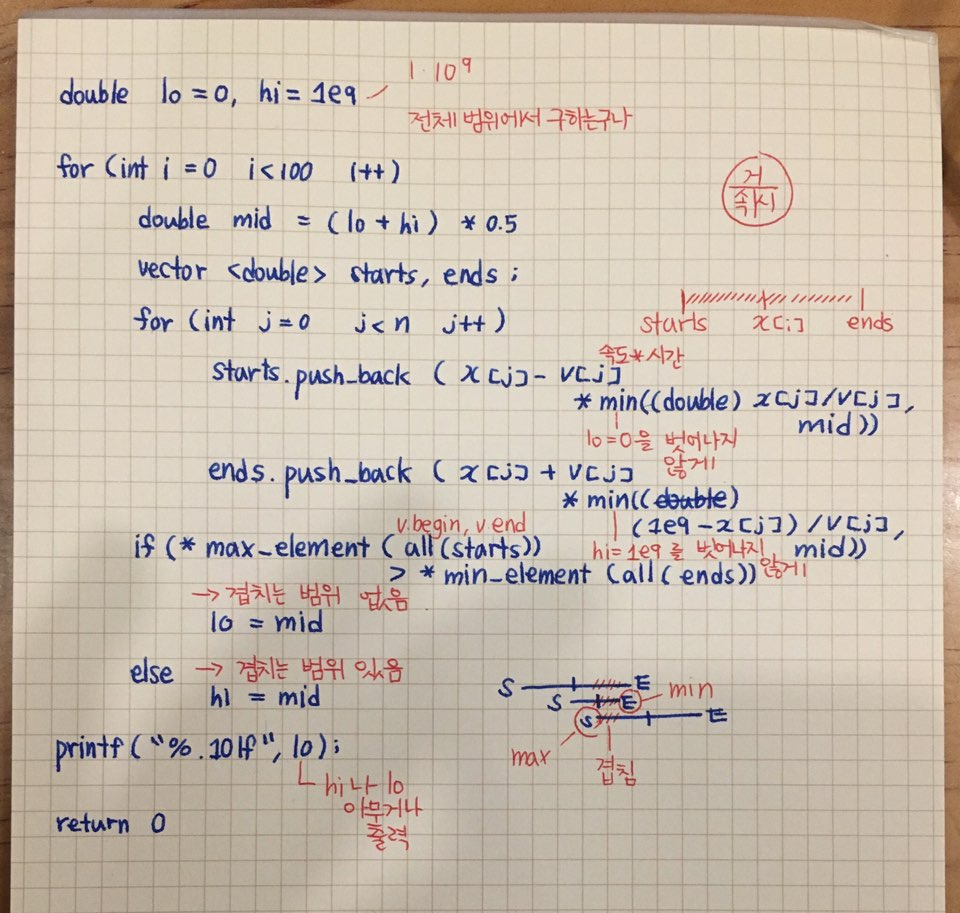 1·10⁹
double lo = 0, hi = 1e9
전체 범위에서 구하는구나
for (int i = 0 i < 100 i++)
거
속 시
double mid = (lo + hi) * 0.5
vector <double> starts, ends ;
for (int j = 0 j < n j++)
starts x[i] ends
속도*시간
starts.push_back ( x[j] - v[j]
* min((double) x[j]/v[j],
mid))
lo = 0을 벗어나지
않게
ends.push_back ( x[j] + v[j]
* min((double)
(1e9 - x[j]) / v[j],
mid))
hi = 1e9 를 벗어나지
않게
v.begin, v end
if (* max_element (all(starts))
> * min_element (all(ends))
→ 겹치는 범위 없음
lo = mid
else → 겹치는 범위 있음
hi = mid
S E
S E min
S E
max 겹침
printf ("%.10lf", lo);
hi나 lo
아무거나
출력
return 0